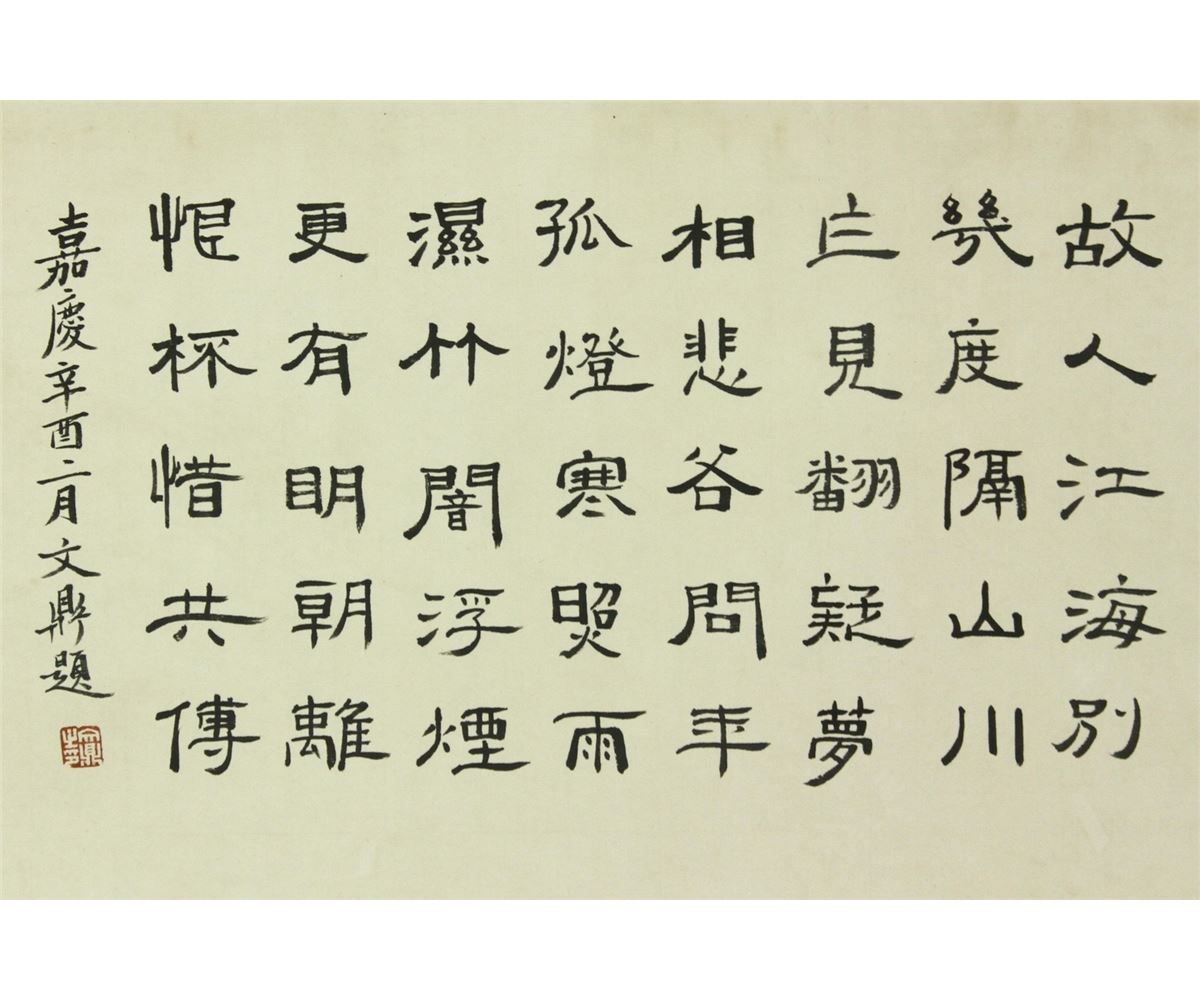 故人江海別
幾度隔山川
乍見翻疑夢
相悲各問年
孤燈寒照雨
濕竹闇浮煙
更有明朝離
恨杯惜共傳
嘉慶辛酉二月文鼎題